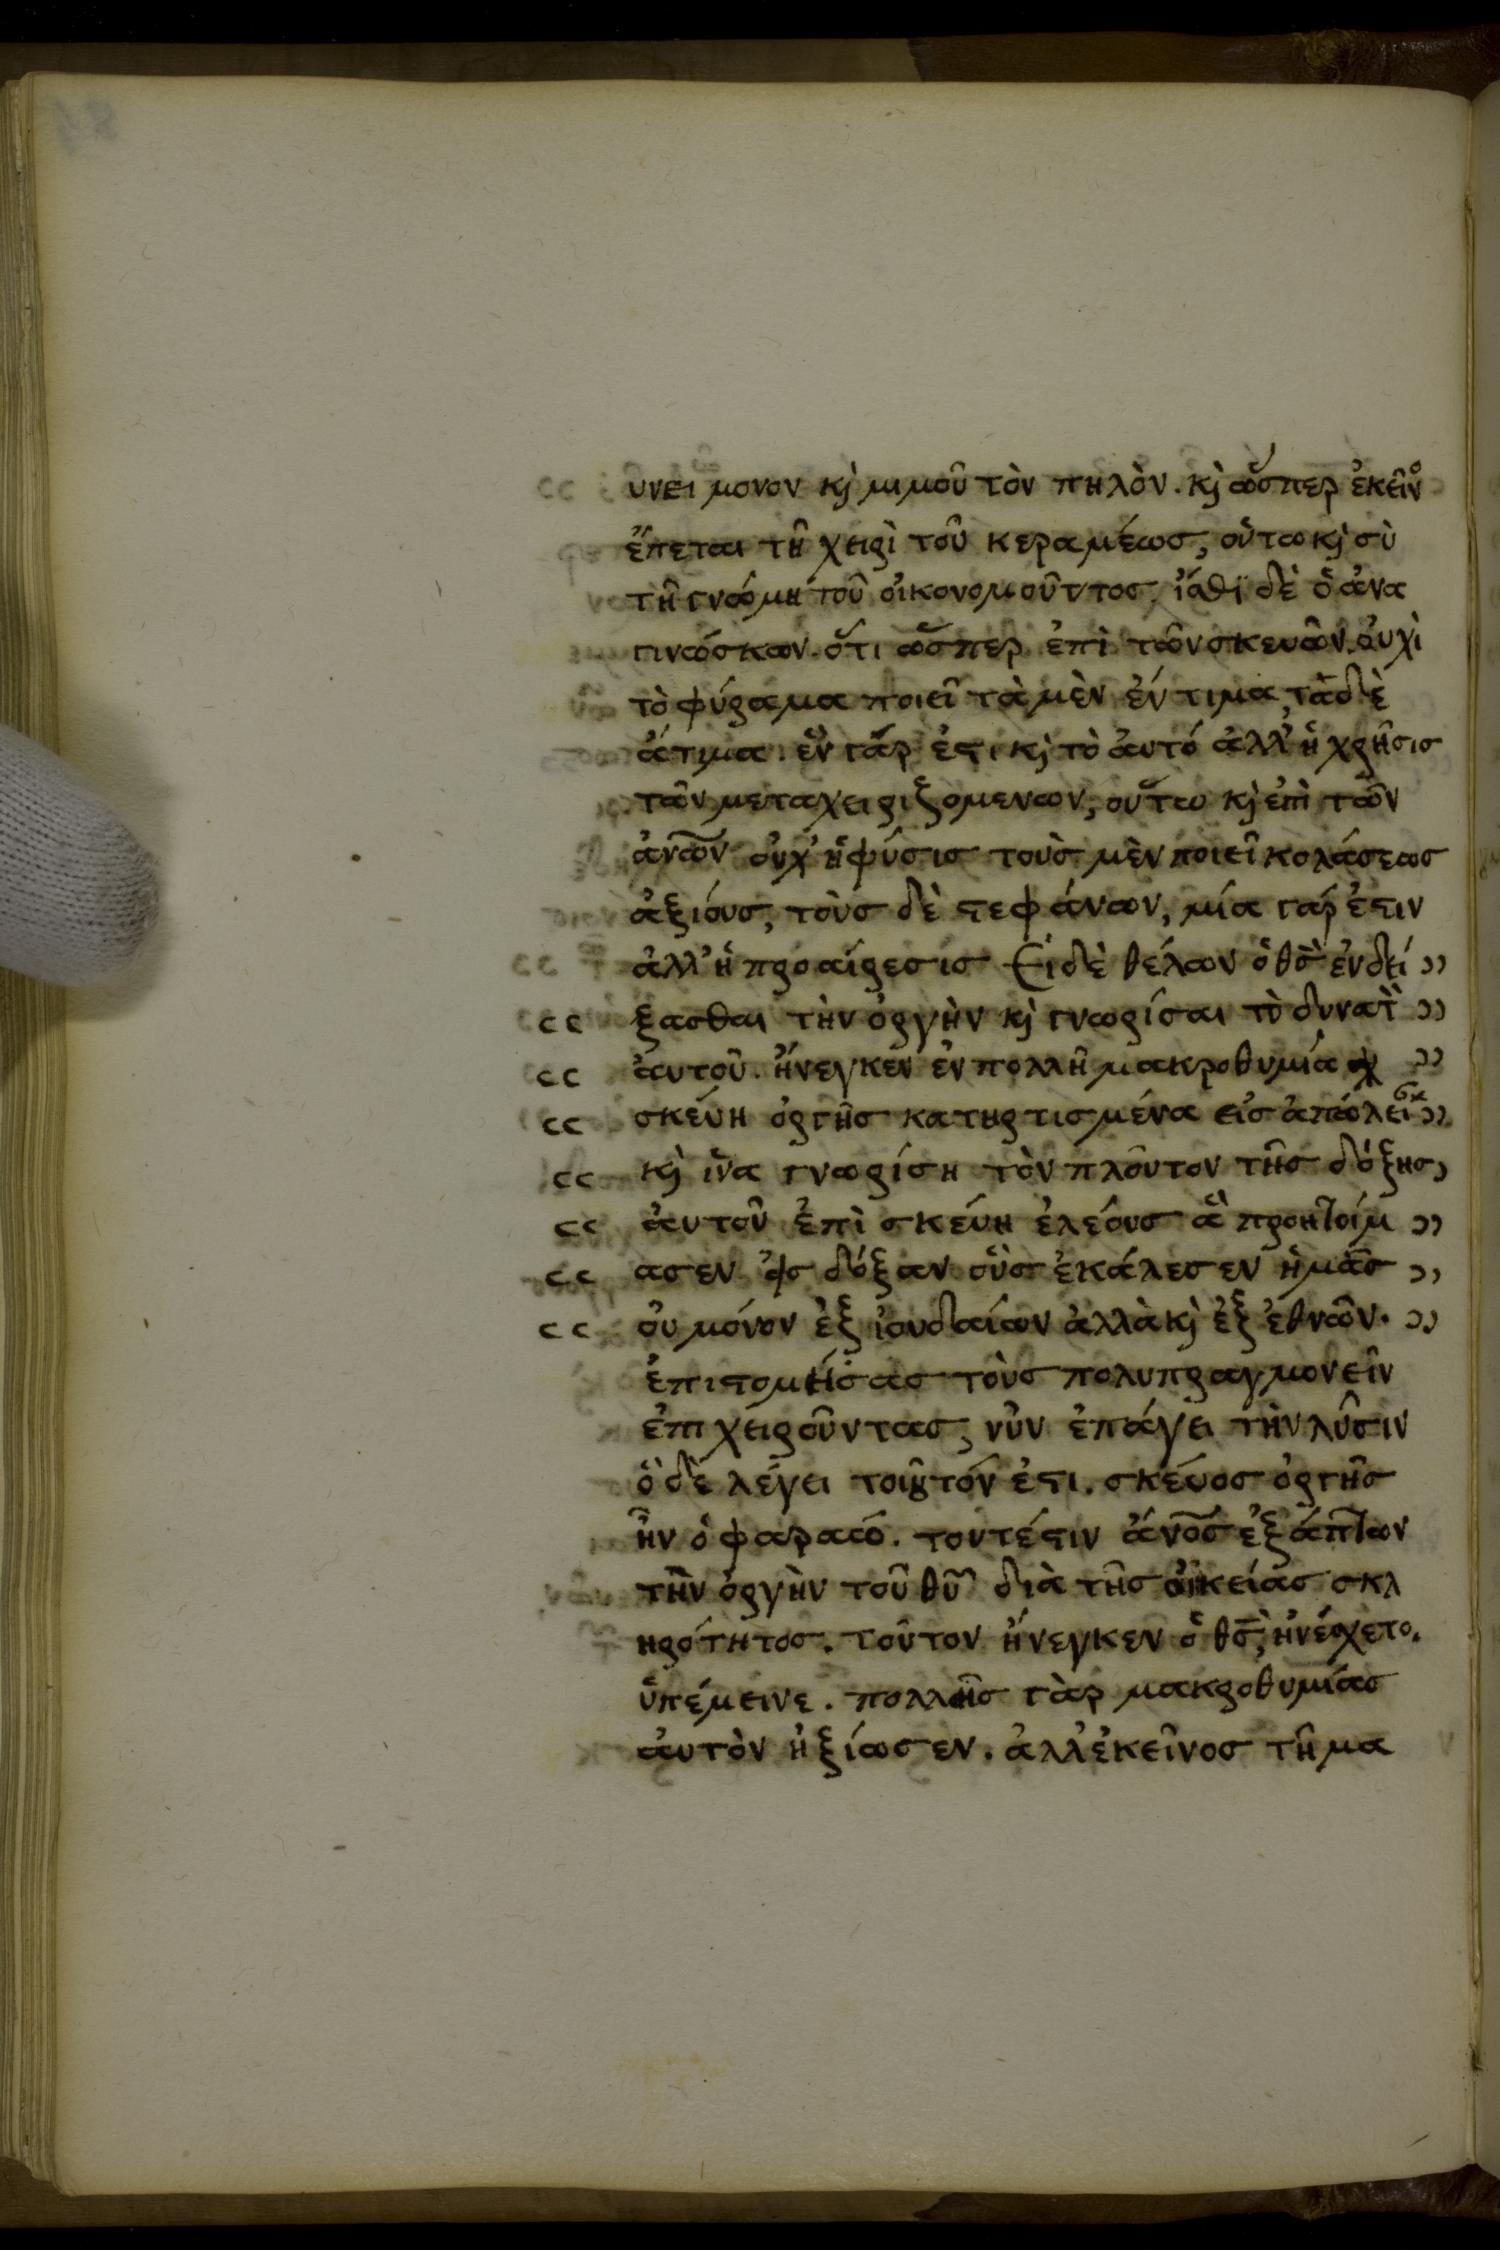 υνει μονον κỳ μιμοῦ τὸν πηλὸν. κỳ ὥσπερ ἐκεῖνο
ἕπεται τῆ χειρὶ τοῦ κεραμέως, οὕτω κỳ σὺ
τῆ γνώμη τοῦ οἰκονομοῦντος. ἴσθι δὲ ὁ ἀνα
γινώσκων. ὅτι ὥσπερ ἐπὶ τῶν σκευῶν. οὐχὶ
τὸ φύραμα ποιεῖ τὰ μὲν ἔντιμα, τὰ δὲ
ἄτιμα. ἓν γάρ ἐϛι κỳ τὸ ἀυτό ἀλλ' ἡ χρῆσις
τῶν μεταχειριζομενων, οὕτω κỳ ἐπὶ τῶν
ἀνῶν οὐχ' ἡ φύσις τοὺς μὲν ποιεῖ κολάσεως
ἀξιόυς, τὸυς δὲ ϛεφάνων, μία γάρ ἐϛιν
ἀλλ' ἡ προαίρεσις Εἰ δὲ θέλων ὁ θς ἐνδεί ››
‹‹ ξασθαι τὴν ὀργὴν κỳ γνωρίσαι τὸ δυνατὸ ››
‹‹ ἀυτοῦ. ἤνεγκεν ἐν πολλῆ μακροθυμία ››
‹‹ σκέυη ὀργῆς κατηρτισμένα εἰς ἀπώλειαν ››
‹‹ κỳ ἵνα γνωρίση τὸν πλοῦτον τῆς δόξης ›
‹‹ ἀυτοῦ ἐπὶ σκέυη ἐλέους ἃ προητοίμ ››
‹‹ ασεν εἰς δόξαν οὓς ἐκάλεσεν ἡμᾶς ››
‹‹ ὀυ μόνον ἐξ ἰουδαίων ἀλλὰ κỳ ἐξ ἐθνῶν. ››
ἐπιϛομήσας τοὺς πολυπραγμονεῖν
ἐπιχειροῦντας, νῦν ἐπάγει τὴν λῦσιν
ὃ δὲ λέγει τοιȣτόν ἐϛι. σκέυος ὀργῆς
ἦν ὁ φαραώ. τουτέϛιν ἄνος ἐξάπτων
τὴν ὀργὴν τοῦ θυ διὰ τῆς οἰκείας σκλ
ηρότητος. τοῦτον ἤνεγκεν ὁ θς, ἠνέσχετο.
ὑπέμεινε. πολλῆς γὰρ μακροθυμίας
ἀυτὸν ἠξίωσεν. ἀλλ' ἐκεῖνος τῆ μα